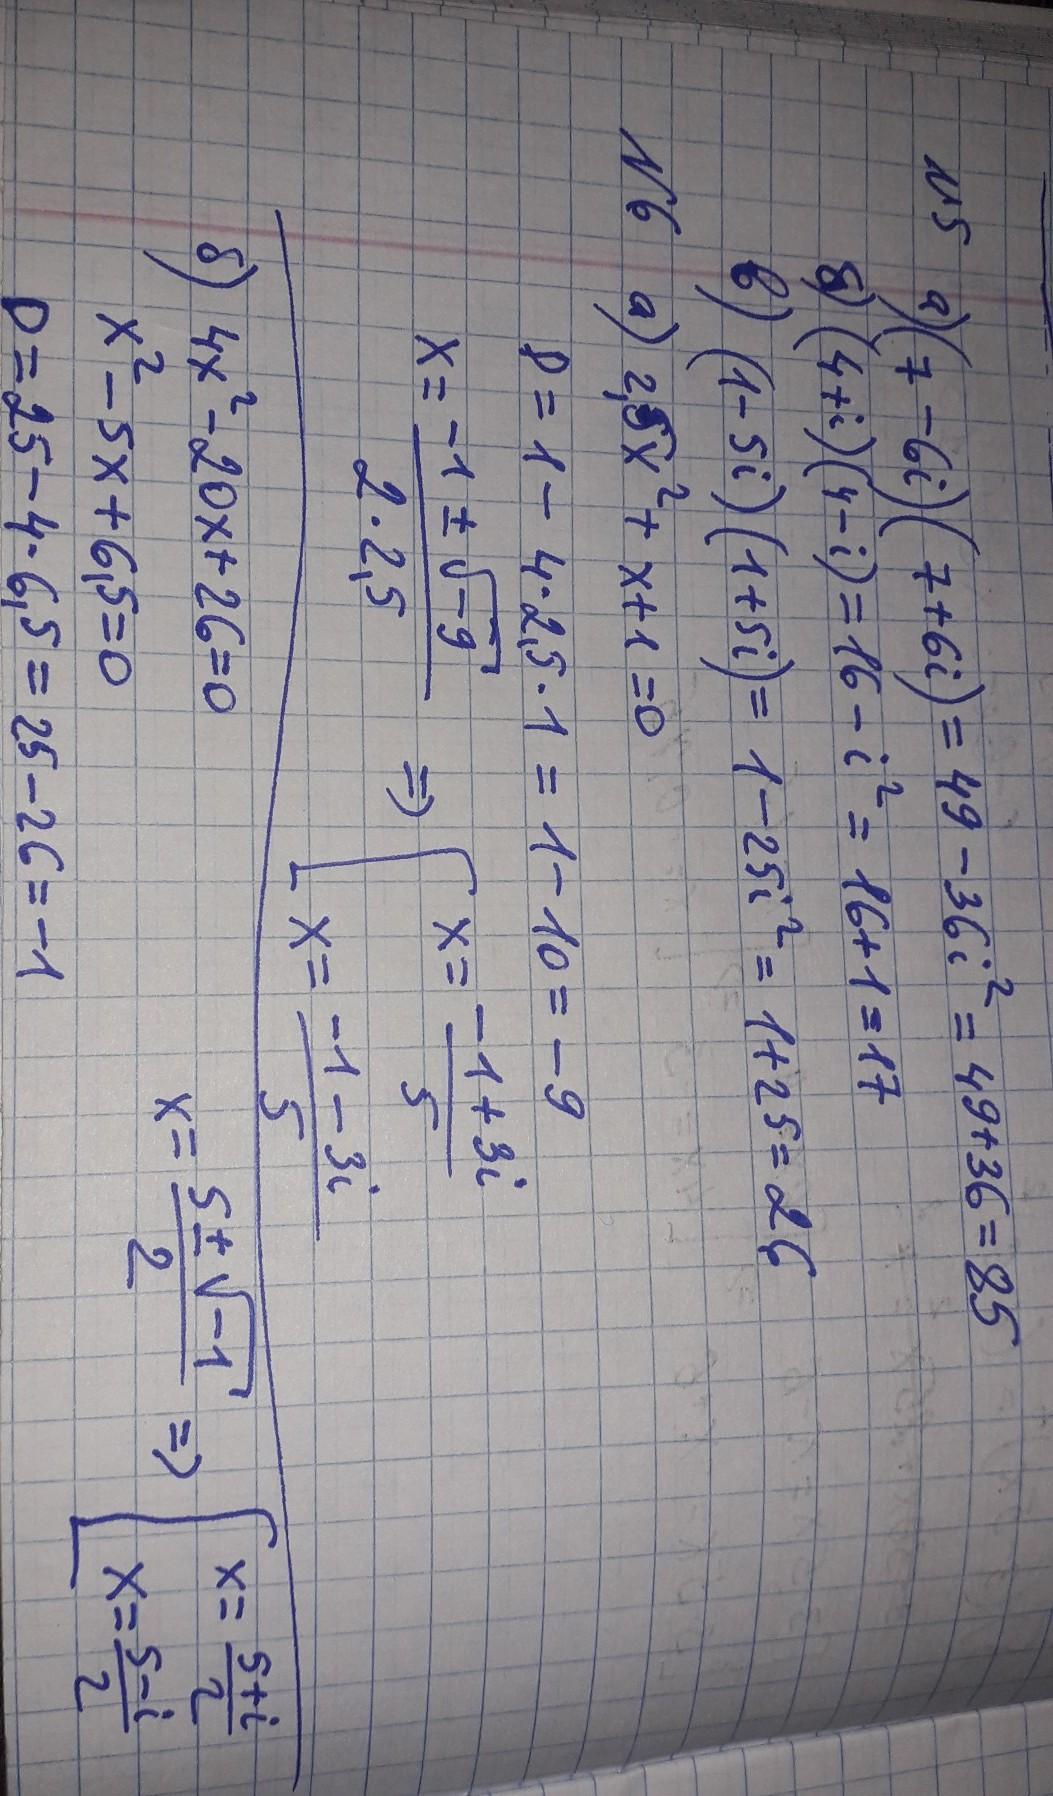 N5 а) (7-6i)(7+6i) = 49-36i² = 49+36 = 85
б) (4+i)(4-i) = 16-i² = 16+1 = 17
в) (1-5i)(1+5i) = 1-25i² = 1+25 = 26
N6 а) 2,5x²+x+1=0
D = 1 - 4·2,5·1 = 1-10 = -9
x = (-1±√-9)/(2·2,5) => [ x = (-1+3i)/5
x = (-1-3i)/5
б) 4x²-20x+26=0
x²-5x+6,5=0
D = 25-4·6,5 = 25-26 = -1
x = (5±√-1)/2 => [ x = (5+i)/2
x = (5-i)/2